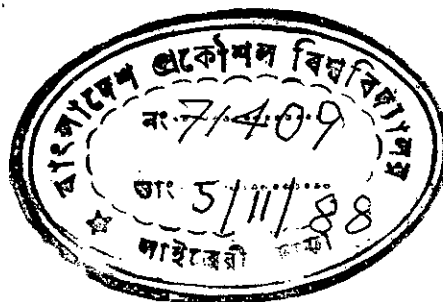 বাংলাদেশ প্রকৌশল বিশ্ববিদ্যালয়
নং 71409
তাং 5/11/88
লাইব্রেরী ঢাকা